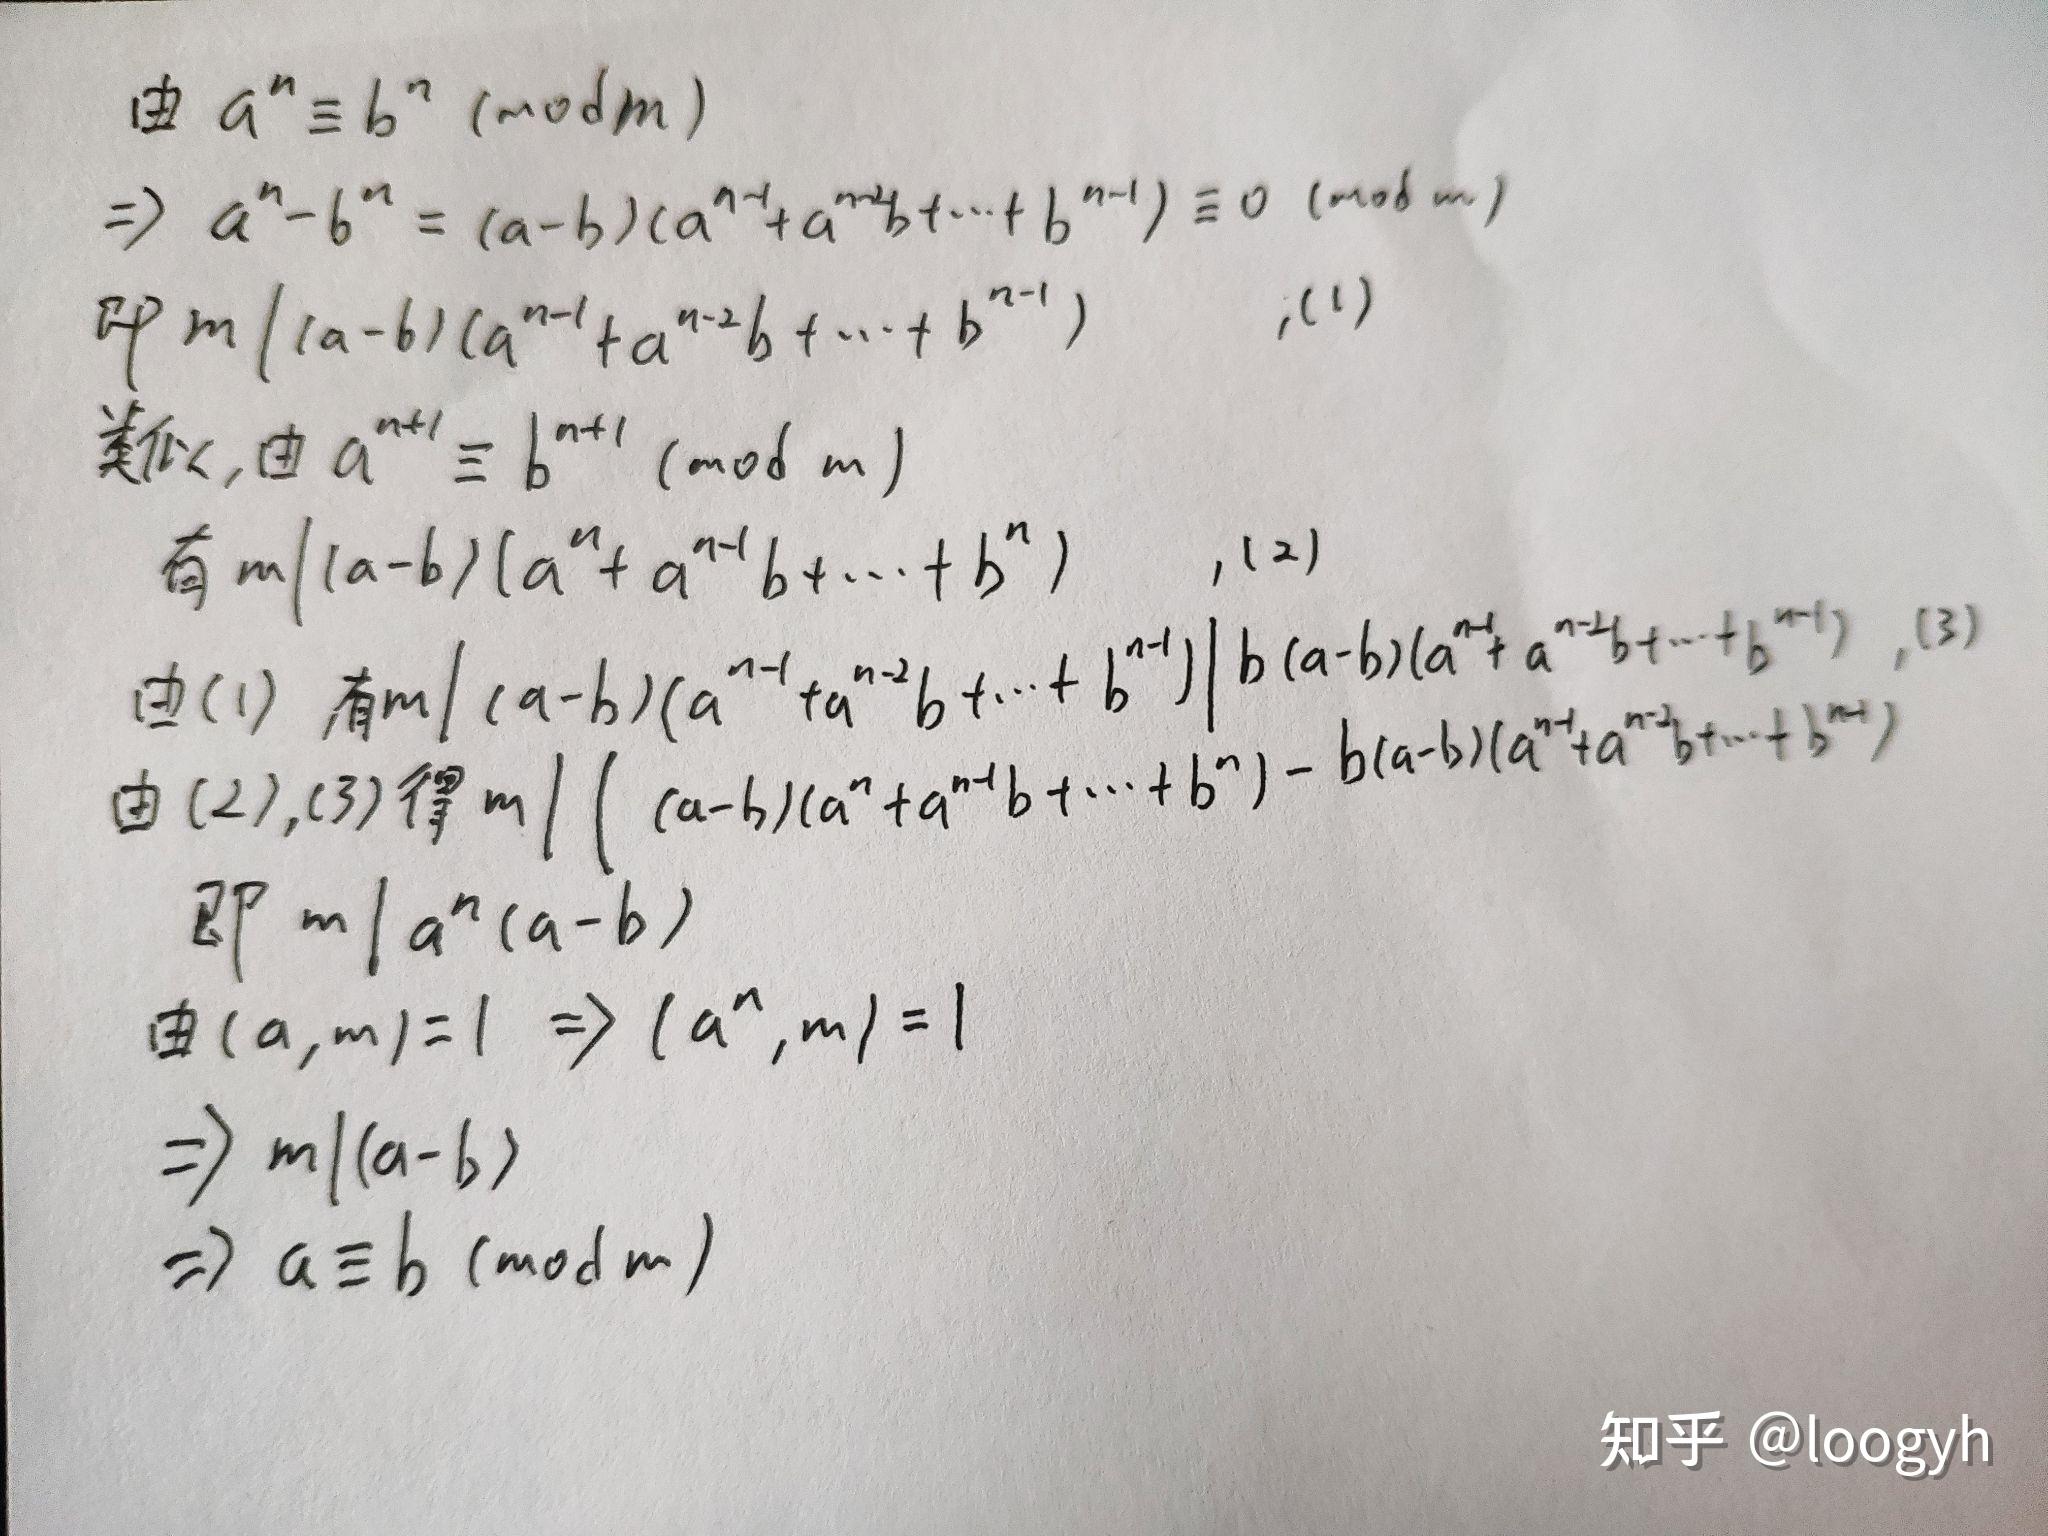 由 aⁿ ≡ bⁿ (mod m)
=> aⁿ-bⁿ = (a-b)(aⁿ⁻¹+aⁿ⁻²b+…+bⁿ⁻¹) ≡ 0 (mod m)
即 m | (a-b)(aⁿ⁻¹+aⁿ⁻²b+…+bⁿ⁻¹) ,(1)
类似,由 aⁿ⁺¹ ≡ bⁿ⁺¹ (mod m)
有 m|(a-b)(aⁿ+aⁿ⁻¹b+…+bⁿ) ,(2)
由(1) 有m|(a-b)(aⁿ⁻¹+aⁿ⁻²b+…+bⁿ⁻¹)|b(a-b)(aⁿ⁻¹+aⁿ⁻²b+…+bⁿ⁻¹) ,(3)
由(2),(3)得 m|( (a-b)(aⁿ+aⁿ⁻¹b+…+bⁿ)-b(a-b)(aⁿ⁻¹+aⁿ⁻²b+…+bⁿ⁻¹)
即 m|aⁿ(a-b)
由(a,m)=1 => (aⁿ,m)=1
=> m|(a-b)
=> a≡b (mod m)
知乎 @loogyh